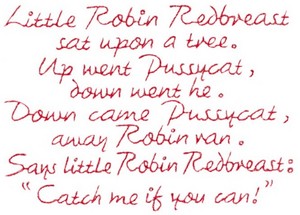 Little Robin Redbreast
sat upon a tree.
Up went Pussycat,
down went he.
Down came Pussycat,
away Robin ran.
Says little Robin Redbreast:
"Catch me if you can!"